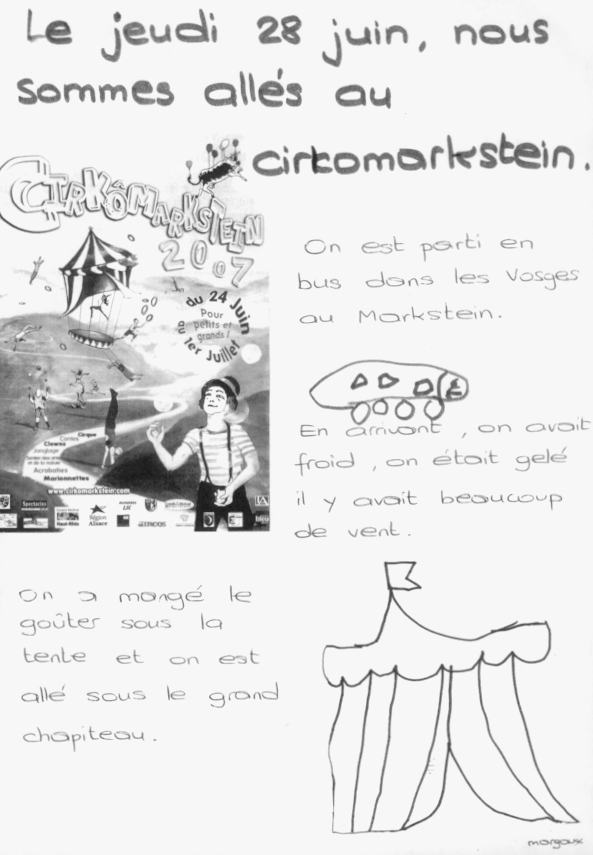 Le jeudi 28 juin, nous
sommes allés au
cirkomarkstein.
CIRKÔMARKSTEIN
2007
du 24 Juin
Pour
petits et
grands !
au 1er Juillet
Cirque
Contes
Clowns
Jonglage
Acrobaties
Marionnettes
www.cirkomarkstein.com
Spectacles
Haut-Rhin
Région
Alsace
bleu
On est parti en
bus dans les Vosges
au Markstein.
En arrivant , on avait
froid , on était gelé
il y avait beaucoup
de vent.
On a mangé le
goûter sous la
tente et on est
allé sous le grand
chapiteau.
margaux